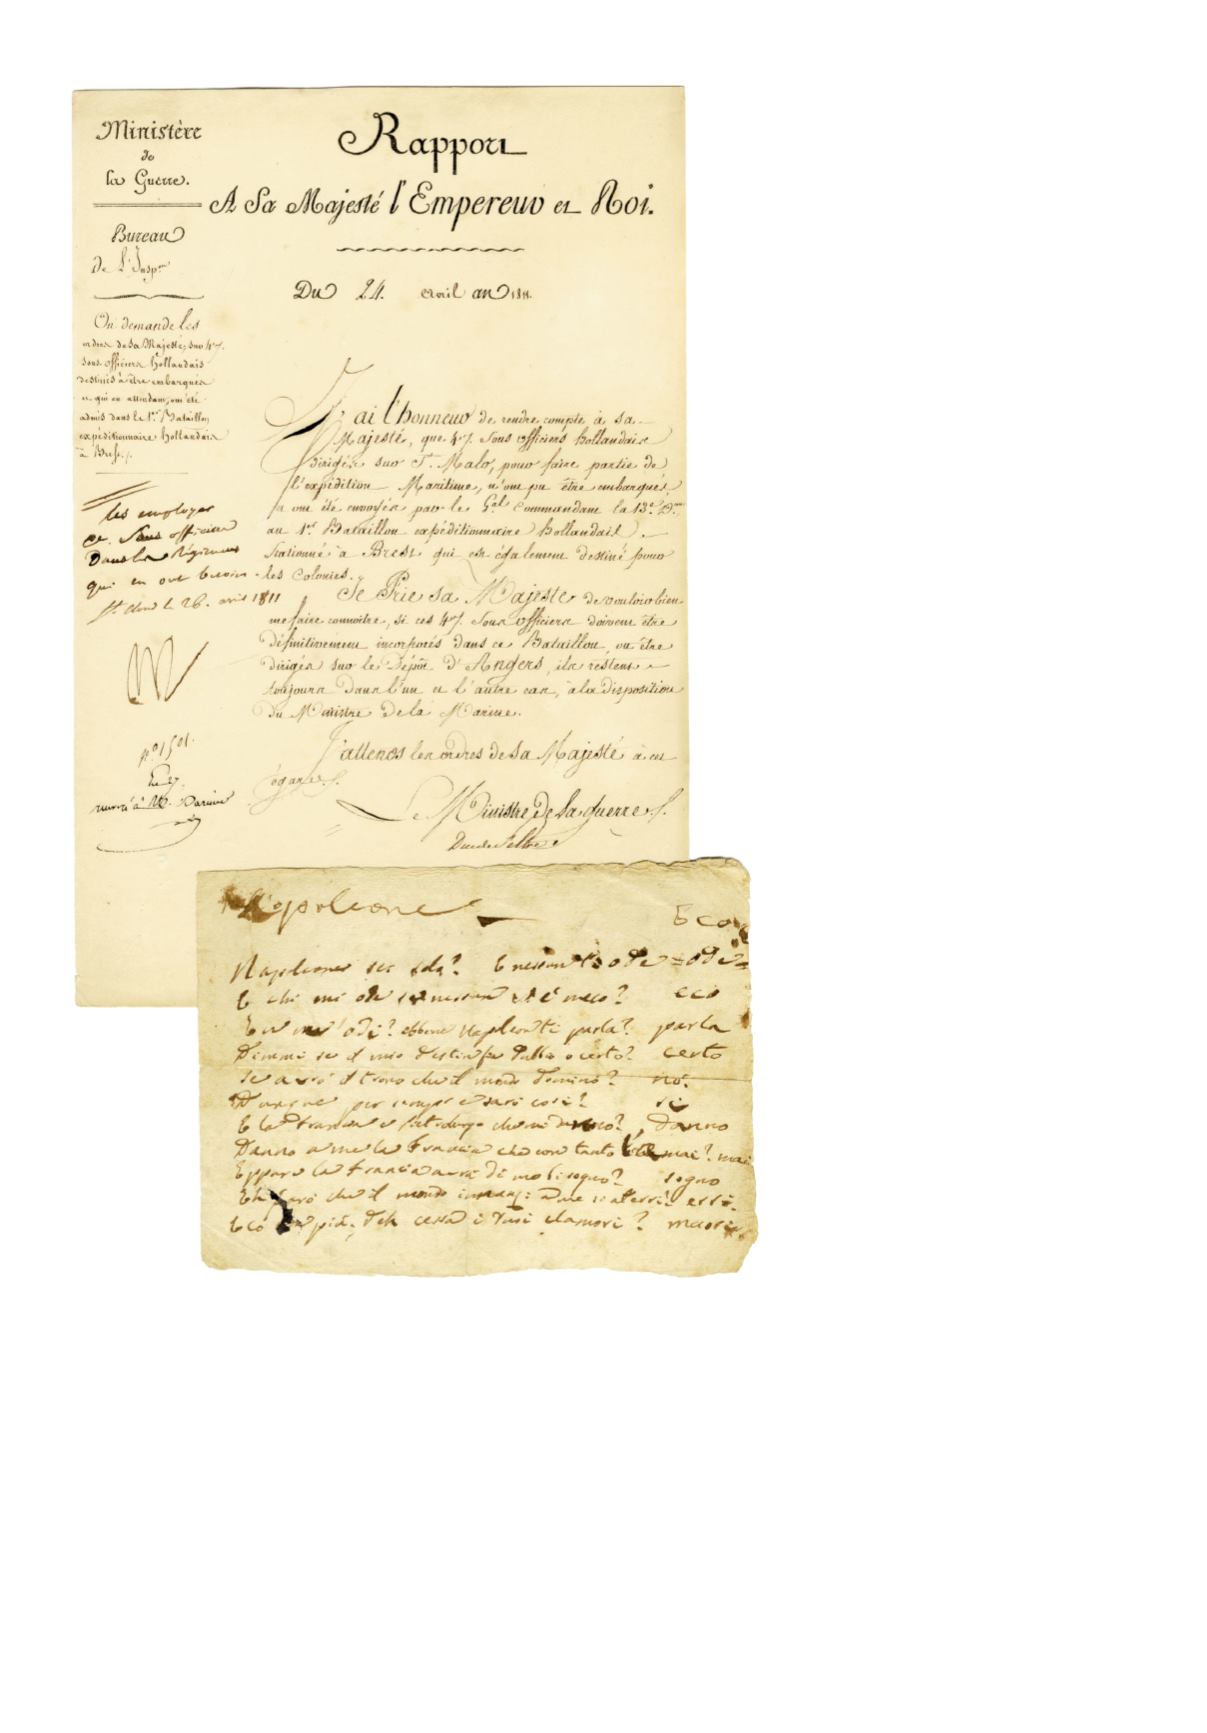 Ministère
de
la Guerre.
Bureau
de l'Insp.on
On demande les
ordres de Sa Majesté, sur 47.
sous officiers hollandais
destinés à être embarqués
et qui en attendant, ont été
admis dans le 1.er Bataillon
expéditionnaire hollandais
à Brest.
Rapport
A Sa Majesté l'Empereur et Roi.
Du 24. avril an 1811.
J'ai l'honneur de rendre compte à Sa
Majesté, que 47 Sous officiers hollandais
dirigés sur St. Malo, pour faire partie de
l'expédition Maritime, n'ont pu être embarqués,
ont été envoyés par le G.al Commandant la 13.e D.on
au 1.er Bataillon expéditionnaire hollandais
stationné à Brest qui est également destiné pour
les Colonies.
Je Prie Sa Majesté de vouloir bien
me faire connoitre, si ces 47 Sous officiers doivent être
définitivement incorporés dans ce Bataillon, ou être
dirigés sur le Dépôt d'Angers, ils restent
toujours dans l'un et l'autre cas, à la disposition
du Ministre de la Marine.
J'attends les ordres de Sa Majesté à cet
égard.
Le Ministre de la guerre
Duc de Feltre
les employer
ces Sous officiers
Dans les Régimens
qui en ont besoin
St. Cloud le 26. avril 1811
N
n.o 1501.
renvoié à M.
Napoleone Eco
Napoleone sei sola? E nessun t'ode = ode =
E chi mi ode se nessun è meco? eco
Eco m'odi? ebbene Napoleon ti parla? parla
Dimmi se il mio destin fu dubbio o certo? certo
Se avrò il trono che il mondo domino? no.
Dunque per sempre sarò così? sì
E la Francia e che mi danno? Danno
Danno a me la Francia che con tanto mai? mai
Eppure la Francia avrà di me bisogno? sogno
Eh farò che il mondo innanzi a me s'atterri: erri.
Eco più, deh cessa i tuoi clamori? muori